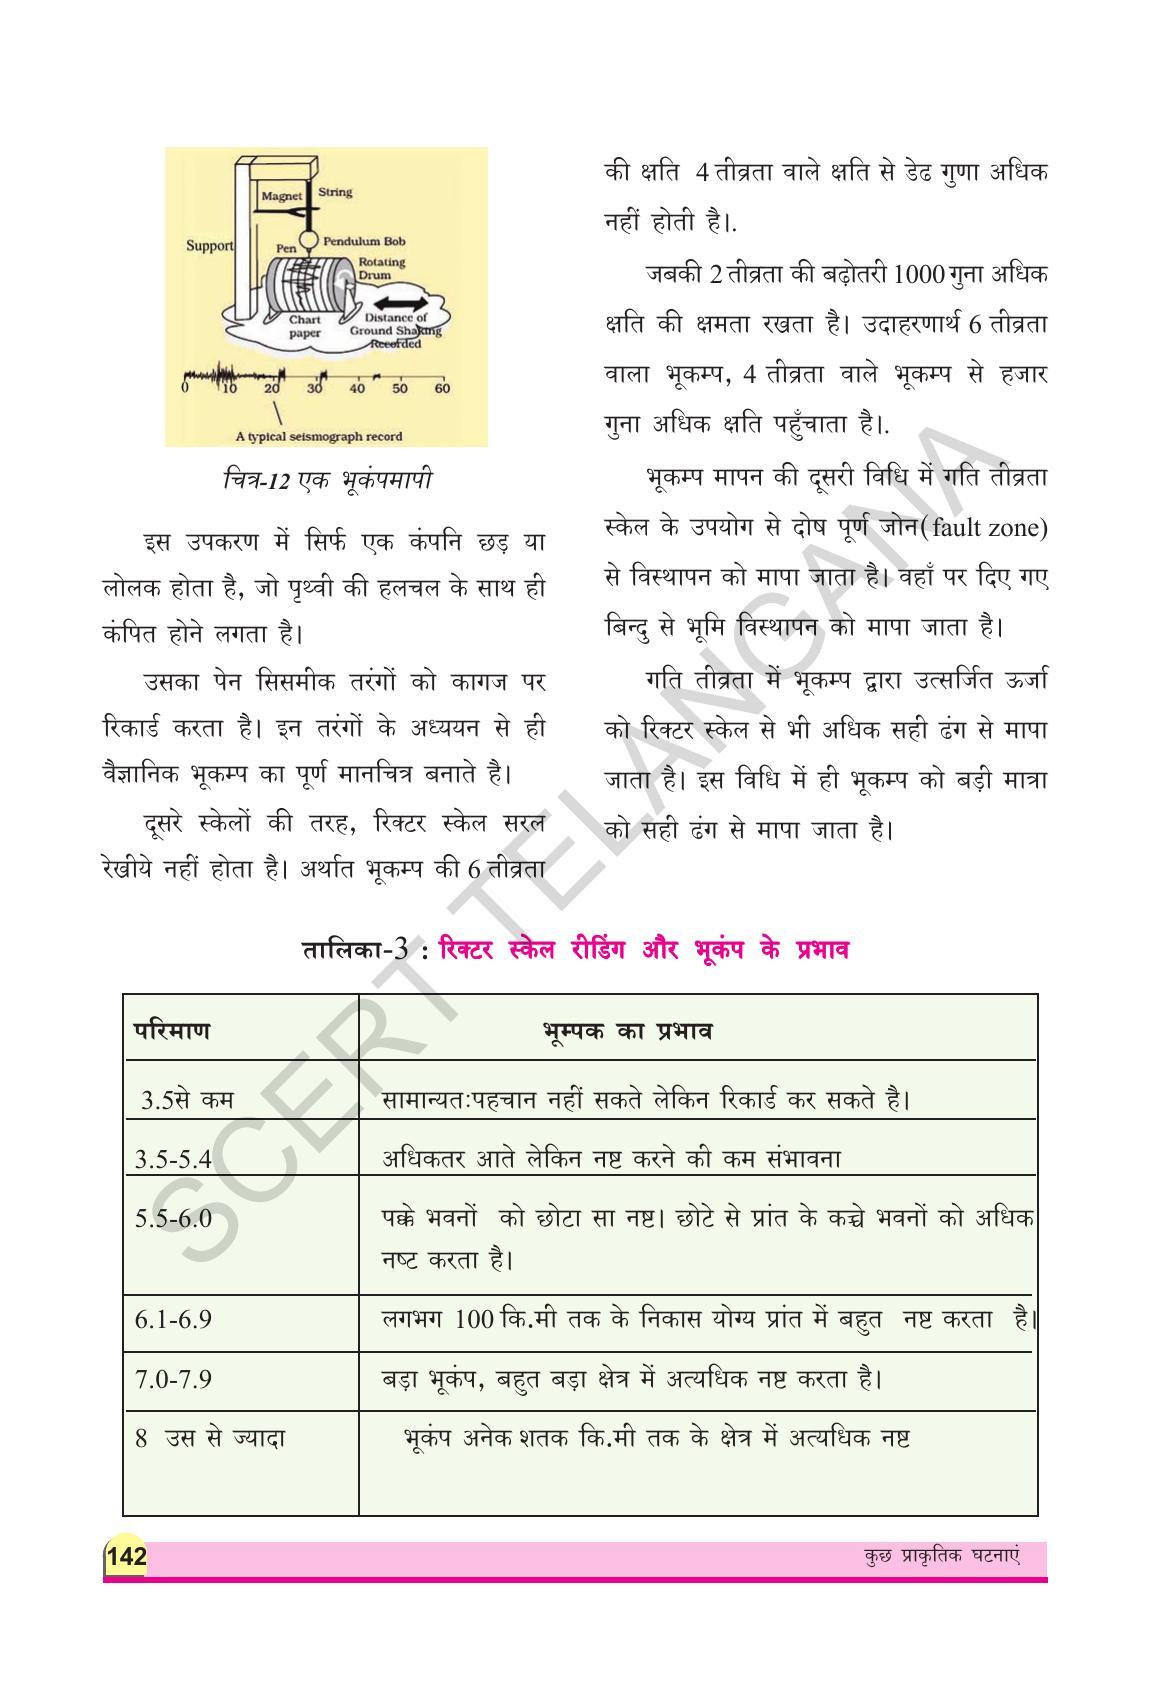 Magnet
String
Support
Pen
Pendulum Bob
Rotating
Drum
Chart
paper
Distance of
Ground Shaking
Recorded
0 10 20 30 40 50 60
A typical seismograph record
चित्र-12 एक भूकंपमापी
इस उपकरण में सिर्फ एक कंपनि छड़ या
लोलक होता है, जो पृथ्वी की हलचल के साथ ही
कंपित होने लगता है।
उसका पेन सिसमीक तरंगों को कागज पर
रिकार्ड करता है। इन तरंगों के अध्ययन से ही
वैज्ञानिक भूकम्प का पूर्ण मानचित्र बनाते है।
दूसरे स्केलों की तरह, रिक्टर स्केल सरल
रेखीये नहीं होता है। अर्थात भूकम्प की 6 तीव्रता
की क्षति 4 तीव्रता वाले क्षति से डेढ गुणा अधिक
नहीं होती है।.
जबकी 2 तीव्रता की बढ़ोतरी 1000 गुना अधिक
क्षति की क्षमता रखता है। उदाहरणार्थ 6 तीव्रता
वाला भूकम्प, 4 तीव्रता वाले भूकम्प से हजार
गुना अधिक क्षति पहुँचाता है।.
भूकम्प मापन की दूसरी विधि में गति तीव्रता
स्केल के उपयोग से दोष पूर्ण जोन(fault zone)
से विस्थापन को मापा जाता है। वहाँ पर दिए गए
बिन्दु से भूमि विस्थापन को मापा जाता है।
गति तीव्रता में भूकम्प द्वारा उत्सर्जित ऊर्जा
को रिक्टर स्केल से भी अधिक सही ढंग से मापा
जाता है। इस विधि में ही भूकम्प को बड़ी मात्रा
को सही ढंग से मापा जाता है।
तालिका-3 : रिक्टर स्केल रीडिंग और भूकंप के प्रभाव
परिमाण भूम्पक का प्रभाव
3.5से कम सामान्यतःपहचान नहीं सकते लेकिन रिकार्ड कर सकते है।
3.5-5.4 अधिकतर आते लेकिन नष्ट करने की कम संभावना
5.5-6.0 पक्के भवनों को छोटा सा नष्ट। छोटे से प्रांत के कच्चे भवनों को अधिक
नष्ट करता है।
6.1-6.9 लगभग 100 कि.मी तक के निकास योग्य प्रांत में बहुत नष्ट करता है।
7.0-7.9 बड़ा भूकंप, बहुत बड़ा क्षेत्र में अत्यधिक नष्ट करता है।
8 उस से ज्यादा भूकंप अनेक शतक कि.मी तक के क्षेत्र में अत्यधिक नष्ट
142
कुछ प्राकृतिक घटनाएं
SCERT TELANGANA